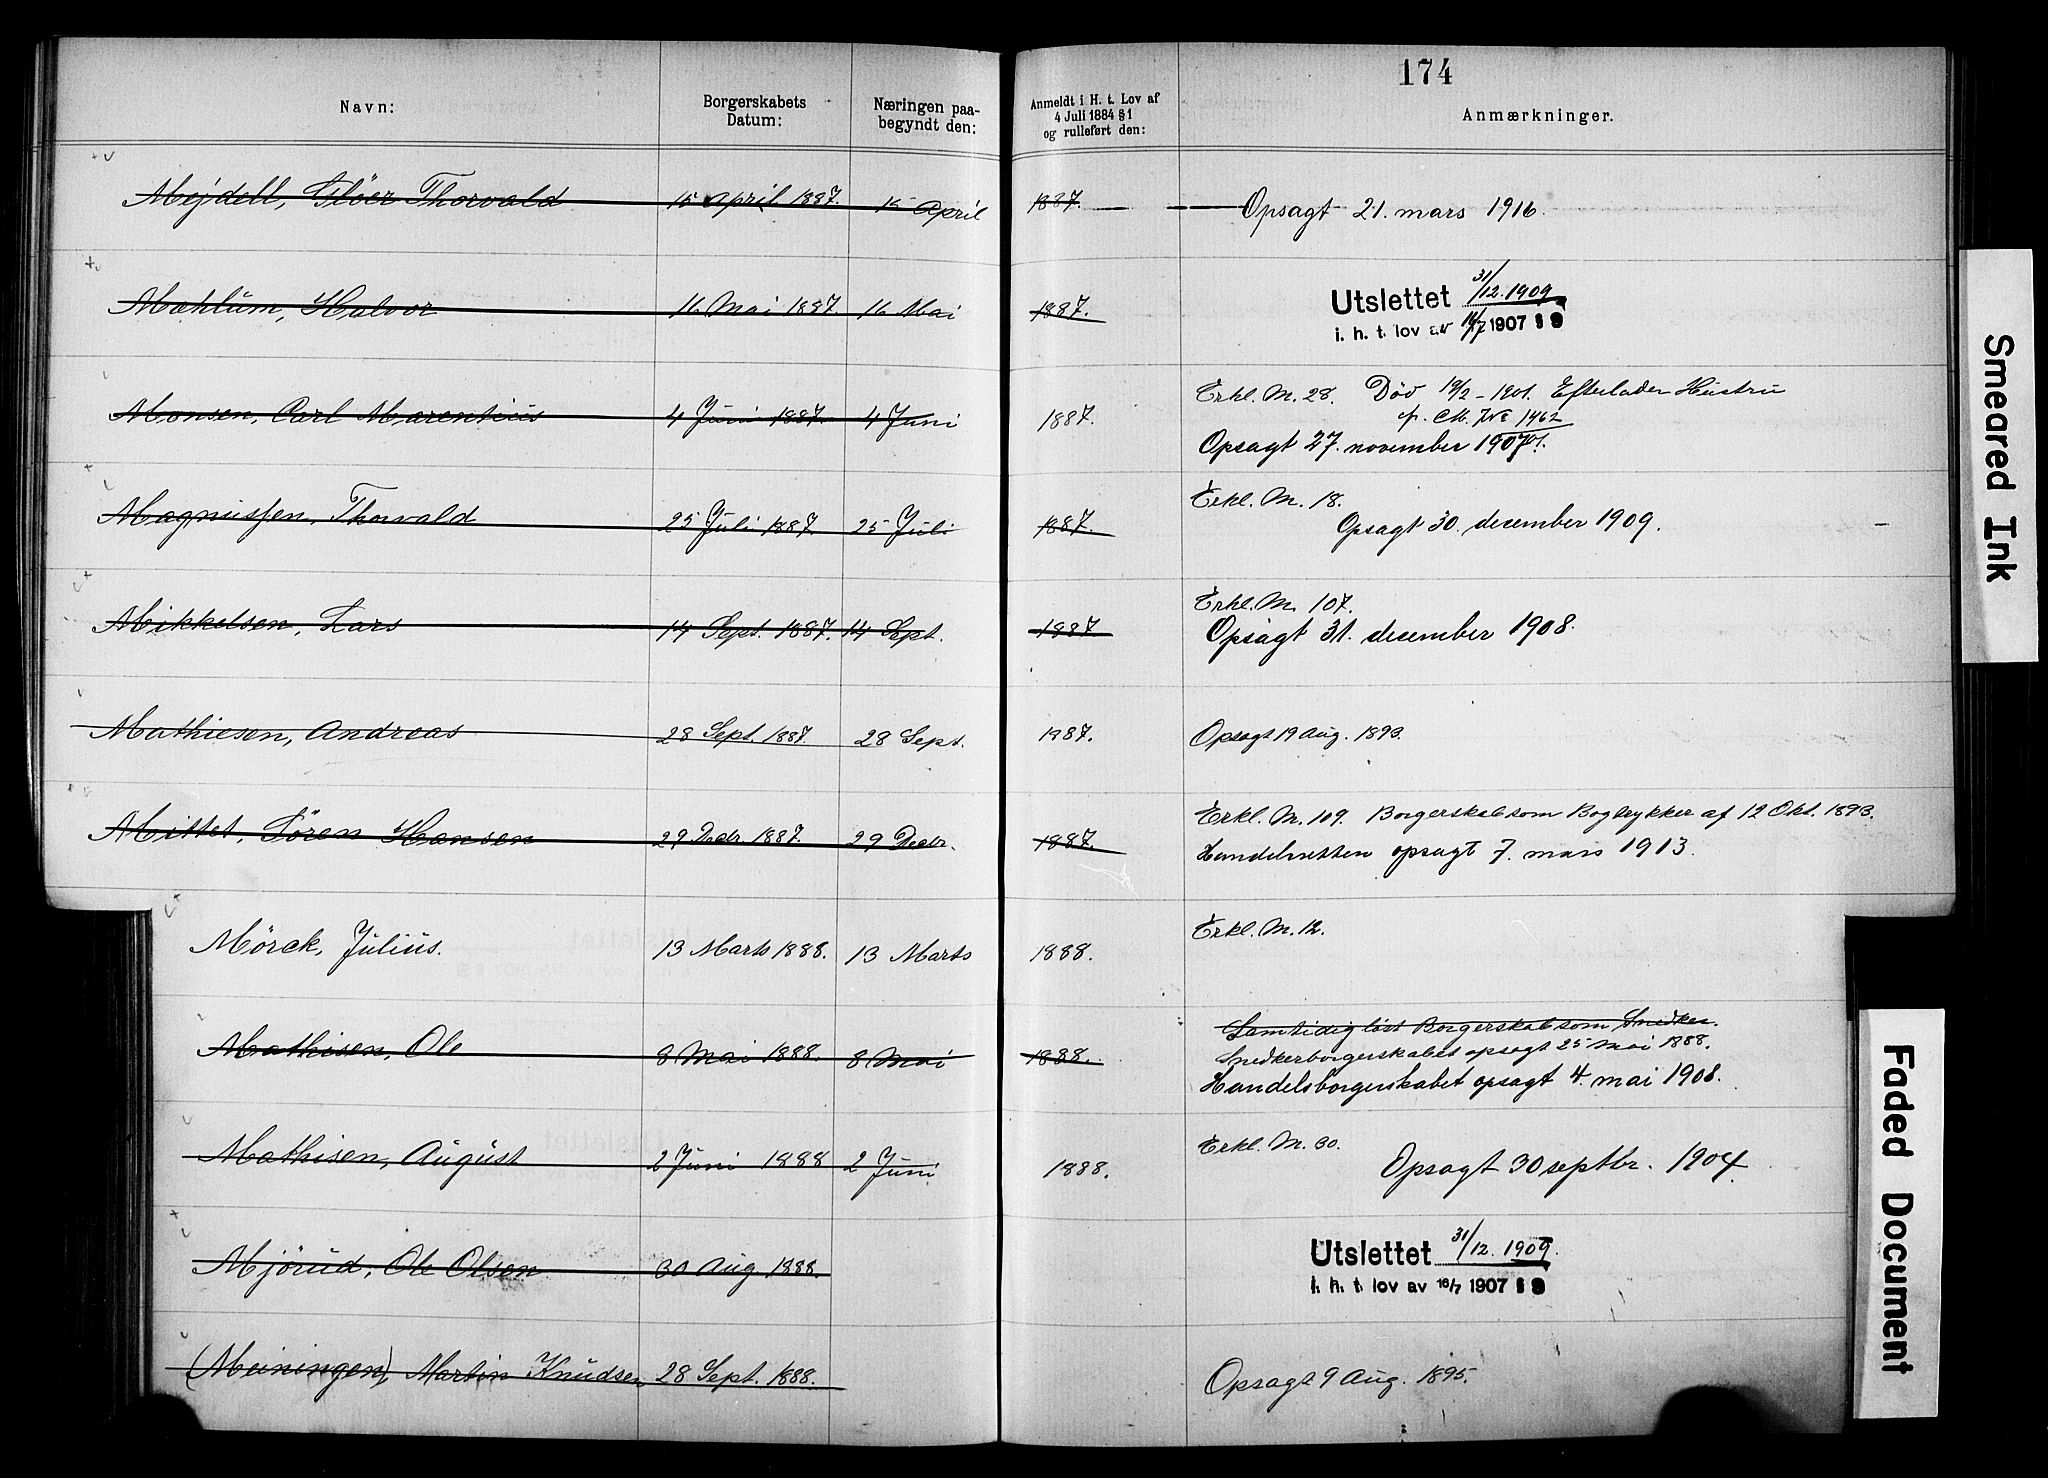 174
Navn: Borgerskabets Datum: Næringen paabegyndt den: Anmeldt i H. t. Lov af 4 Juli 1884 § 1 og rulleført den: Anmærkninger.
Mejdell, Glöer Thorvald 15 April 1887. 15 April 1887. Opsagt 21. mars 1916.
Mæhlum, Halvor 16 Mai 1887 16 Mai 1887. Utslettet 31/12.1909
i. h. t. lov av 16/7 1907 § 9
Monsen, Carl Marentius 4 Juni 1887. 4 Juni 1887. Erkl. M. 28. Död 19/2 - 1901. Efterlader Hustru
cfr. CM. JNo 1462
Opsagt 27. november 1907.
Magnussen, Thorvald 25 Juli 1887. 25 Juli 1887. Erkl. M. 18.
Opsagt 30. december 1909.
Mikkelsen, Lars 14 Sept. 1887. 14 Sept. 1887 Erkl. M. 107.
Opsagt 31. december 1908.
Mathiesen, Andreas 28 Sept. 1887. 28 Sept. 1887. Opsagt 19 Aug. 1893.
Mittet, Sören Hansen 29 Decbr. 1887. 29 Decbr. 1887. Erkl. M. 109. Borgerskab som Bogtrykker af 12 Okt. 1893.
Handelsretten opsagt 7. mars 1913.
Mörck, Julius. 13 Marts 1888. 13 Marts 1888. Erkl. M. 12.
Mathisen, Ole 8 Mai 1888. 8 Mai 1888. Samtidig löst Borgerskab som Snedker.
Snedkerborgerskabet opsagt 25 Mai 1888.
Handelsborgerskabet opsagt 4. mai 1908.
Mathisen, August 2 Juni 1888 2 Juni 1888. Erkl. M. 30.
Opsagt 30 septbr. 1904.
Mjörud, Ole Olsen 30 Aug 1888. Utslettet 31/12.1909.
i. h. t. lov av 16/7 1907 § 9
(Meiningen), Martin Knudsen 28 Sept. 1888. Opsagt 9 Aug. 1895.
Smeared Ink
Faded Document